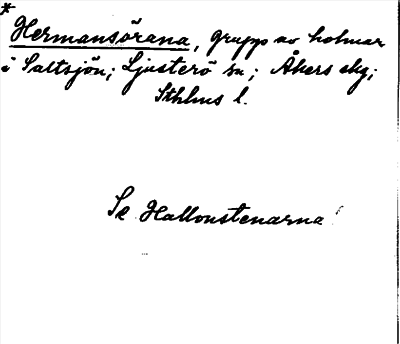 *
Hermansörana, grupp av holmar
i Saltsjön; Ljusterö sn; Åkers skg;
Sthlms l.
Se Hallonstenarna